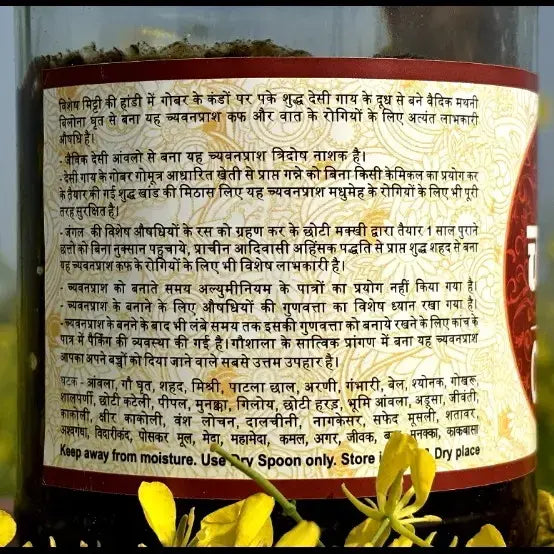 विशेष मिट्टी की हांडी में गोबर के कंडों पर पके शुद्ध देसी गाय के दूध से बने वैदिक मथनी
बिलोना घृत से बना यह च्यवनप्राश कफ और वात के रोगियों के लिए अत्यंत लाभकारी
औषधि है।
- जैविक देसी आंवलो से बना यह च्यवनप्राश त्रिदोष नाशक है।
- देसी गाय के गोबर गोमूत्र आधारित खेती से प्राप्त गन्ने को बिना किसी केमिकल का प्रयोग कर
के तैयार की गई शुद्ध खांड की मिठास लिए यह च्यवनप्राश मधुमेह के रोगियों के लिए भी पूरी
तरह सुरक्षित है।
- जंगल की विशेष औषधियों के रस को ग्रहण कर के छोटी मक्खी द्वारा तैयार 1 साल पुराने
छत्तो को बिना नुक्सान पहुचाये, प्राचीन आदिवासी अहिंसक पद्धति से प्राप्त शुद्ध शहद से बना
यह च्यवनप्राश कफ के रोगियों के लिए भी विशेष लाभकारी है।
- च्यवनप्राश को बनाते समय अल्युमीनियम के पात्रों का प्रयोग नहीं किया गया है।
- च्यवनप्राश के बनाने के लिए औषधियों की गुणवत्ता का विशेष ध्यान रखा गया है।
- च्यवनप्राश के बनाने के बाद भी लंबे समय तक इसकी गुणवत्ता को बनाये रखने के लिए कांच के
पात्र में पैकिंग की व्यवस्था की गई है। गौशाला के सात्विक प्रांगण में बना यह च्यवनप्राश
आपका अपने बच्चों को दिया जाने वाले सबसे उत्तम उपहार है।
घटक - आंवला, गौ घृत, शहद, मिश्री, पाटला छाल, अरणी, गंभारी, बेल, श्योनक, गोखरू,
शालपर्णी, छोटी कटेली, पीपल, मुनक्का, गिलोय, छोटी हरड़, भूमि आंवला, अडूसा, जीवंती,
काकोली, क्षीर काकोली, वंश लोचन, दालचीनी, नागकेसर, सफेद मूसली, शतावर,
अश्वगंधा, विदारीकंद, पोसकर मूल, मेदा, महामेदा, कमल, अगर, जीवक, मुनक्का, काकनासा
Keep away from moisture. Use Dry Spoon only. Store Dry place